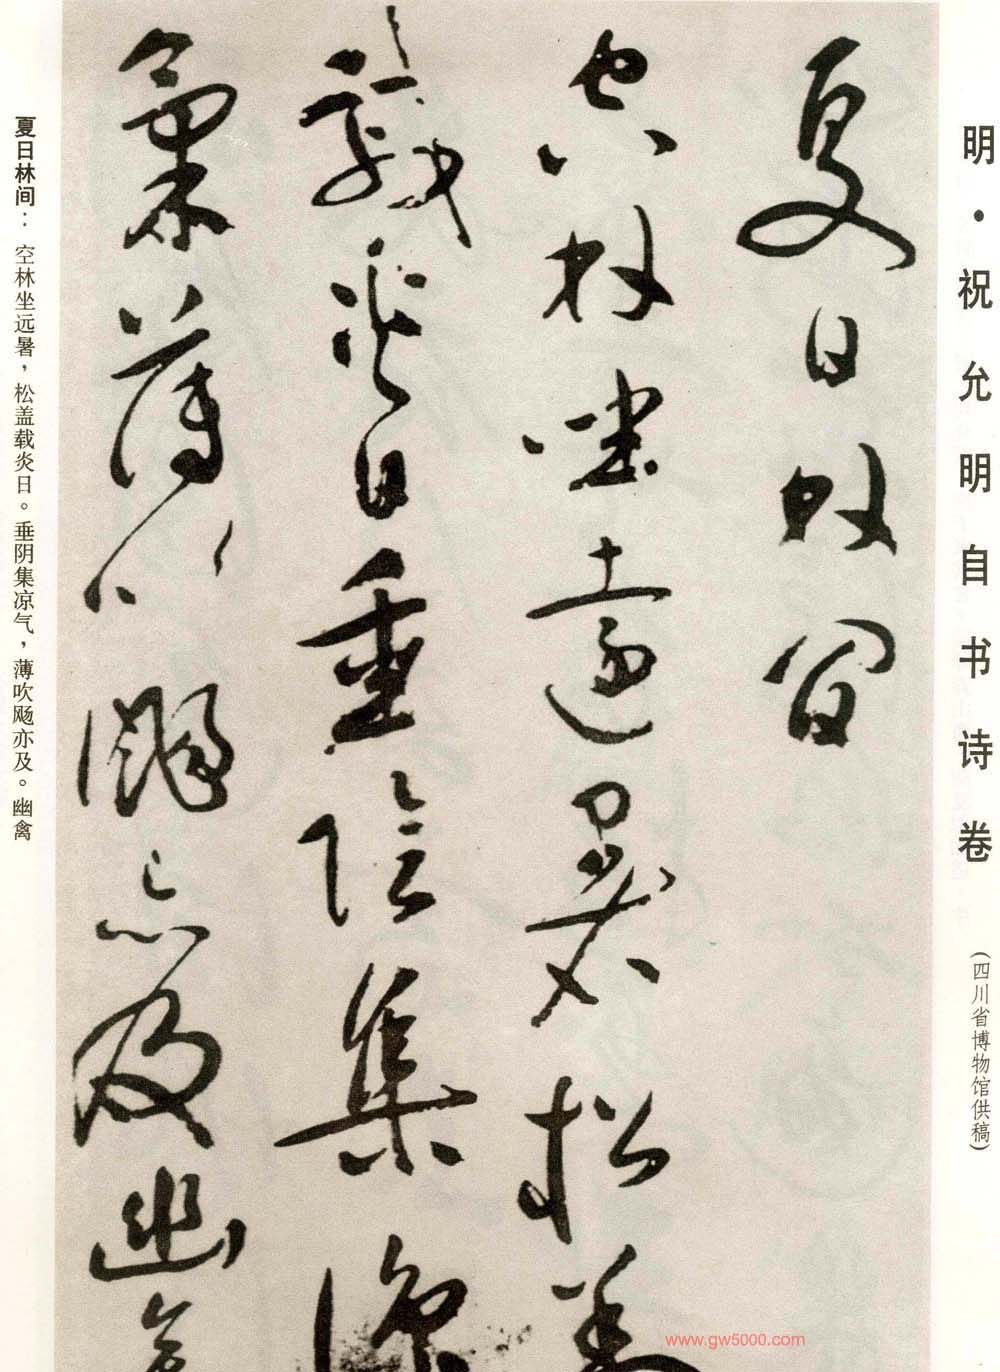 明·祝允明自书诗卷
(四川省博物馆供稿)
夏日林间
空林坐远暑松盖
载炎日垂阴集凉
气薄吹飏亦及幽禽
夏日林间：空林坐远暑，松盖载炎日。垂阴集凉气，薄吹飏亦及。幽禽
www.gw5000.com